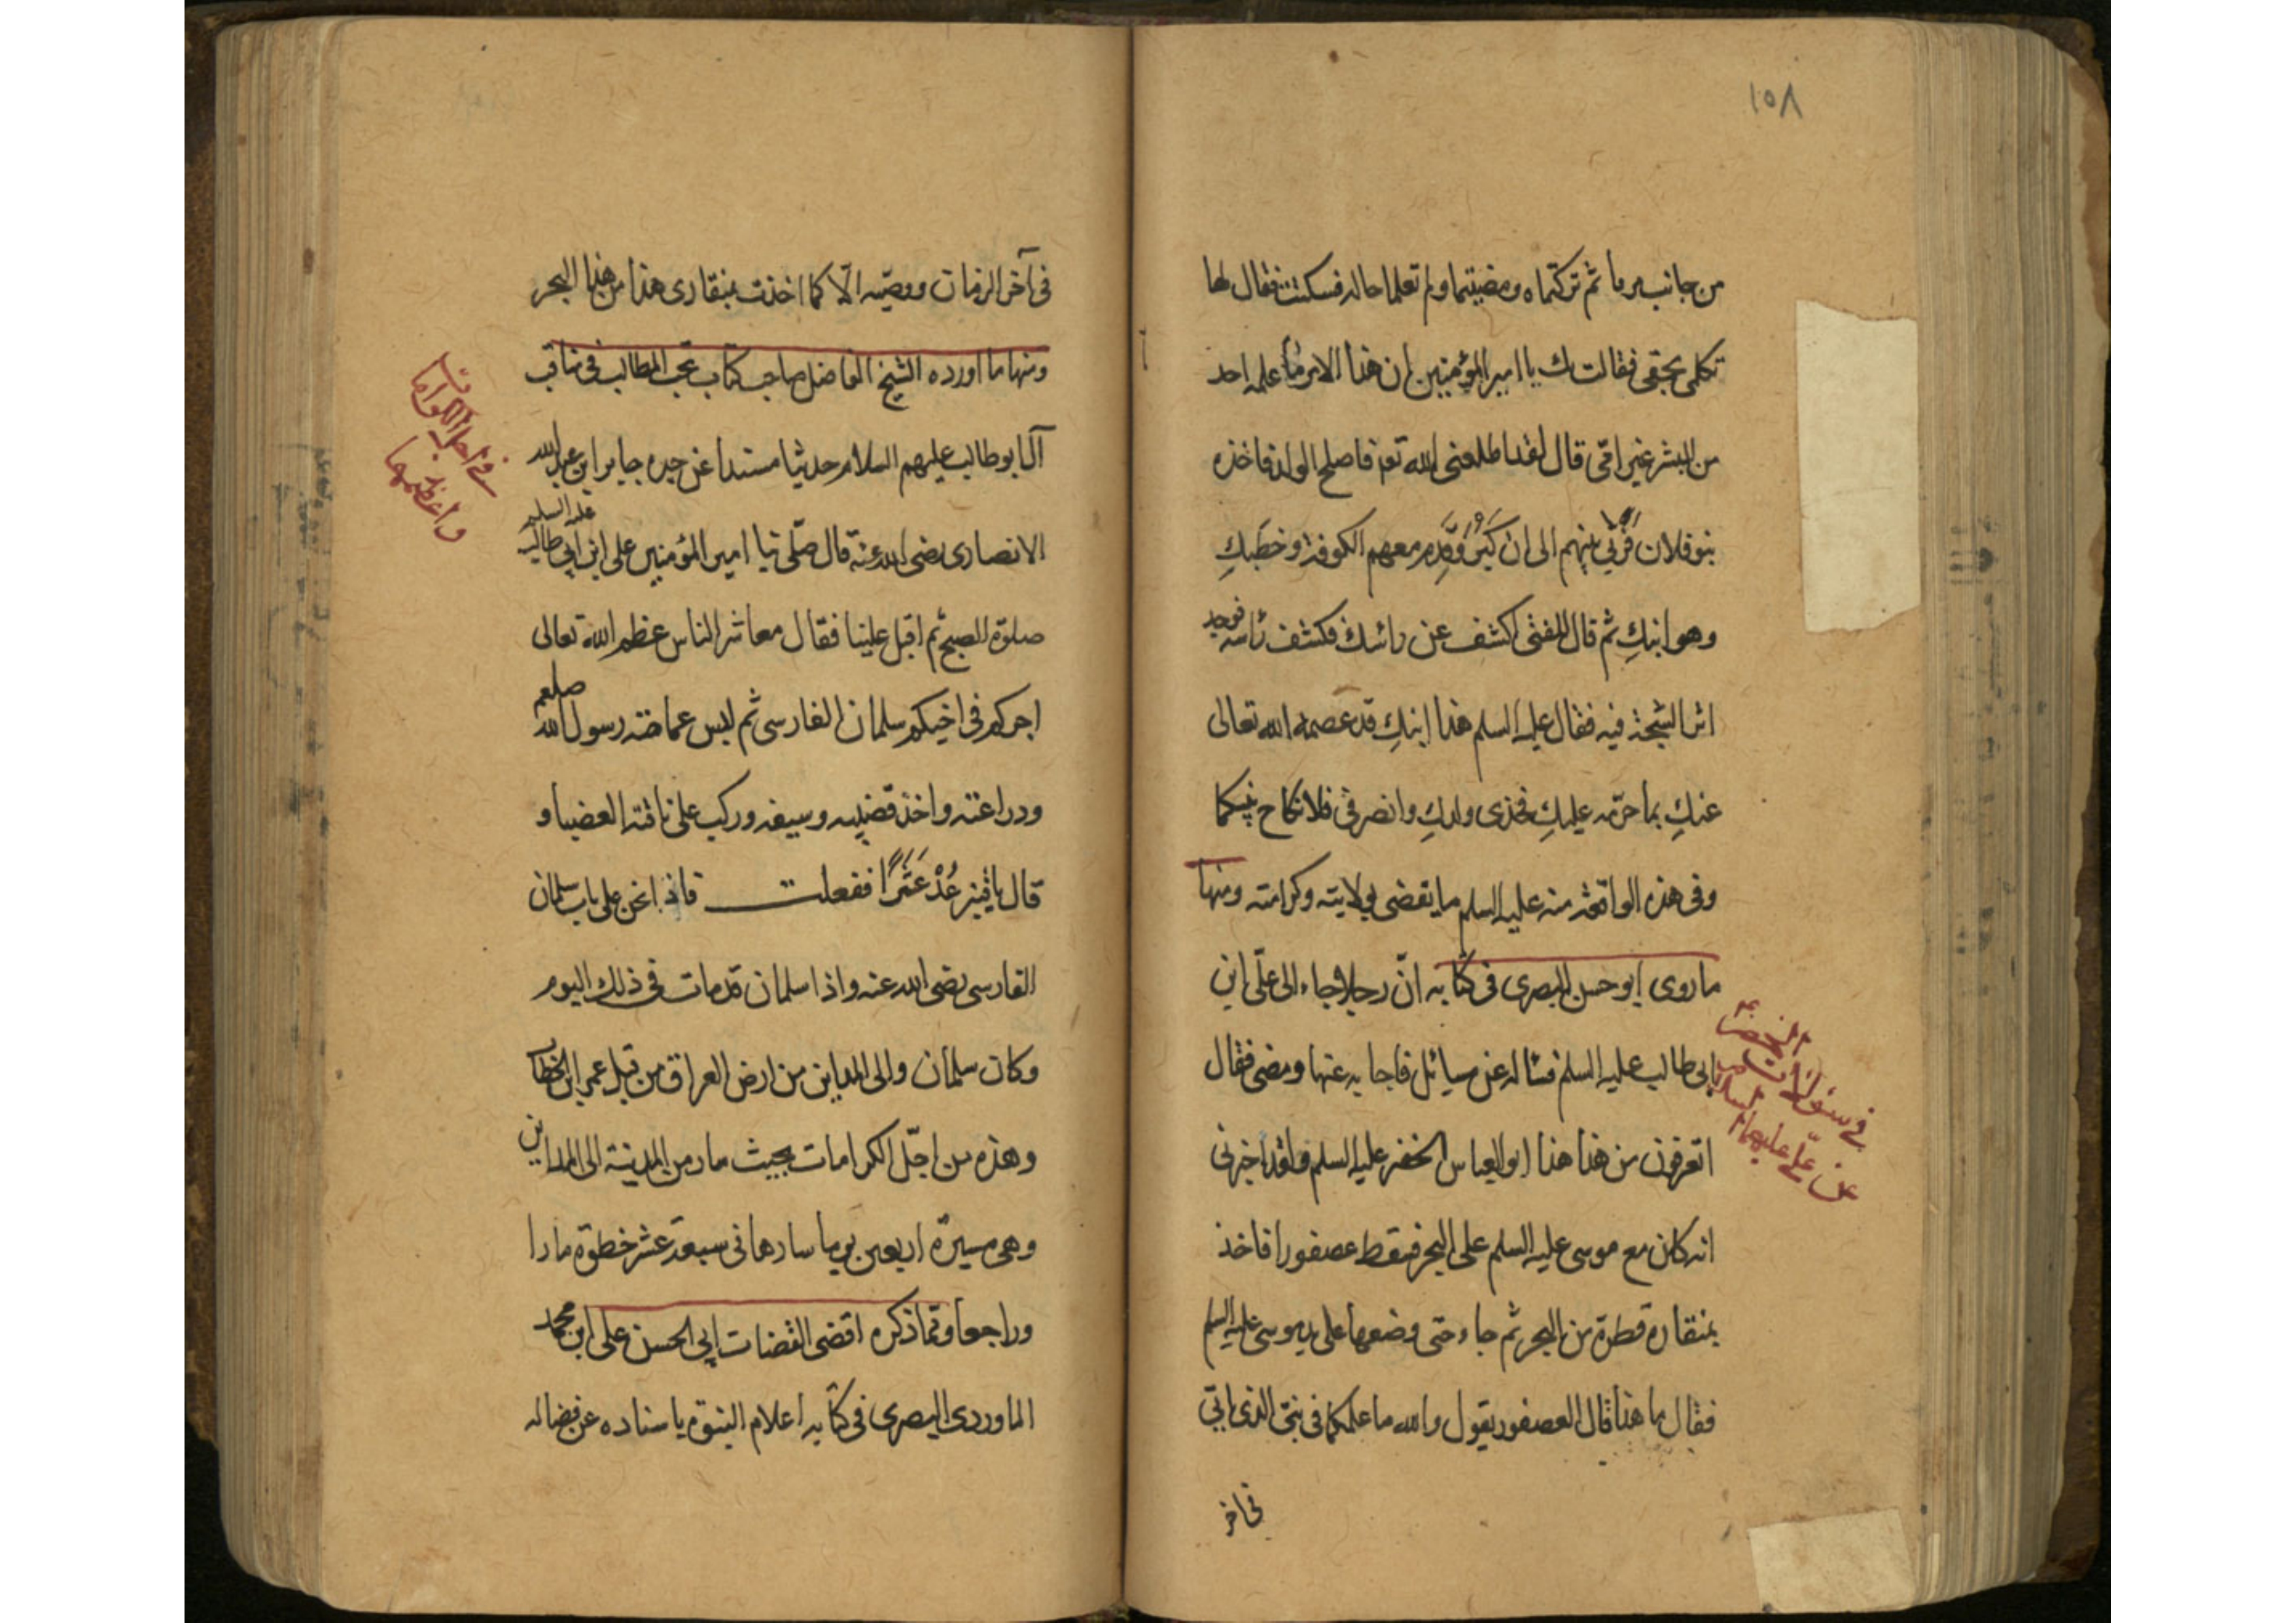 ١٥٨
من جانب يرما ثم تركتماه ومضيتما ولم تعلما حاله فسكتت فقال لها
تكلمي بحقي فقالت بك يا امير المؤمنين ان هذا الامر ما علمه احد
من البشر غير امّي قال لقد اطلعني الله تع فاصلح الولد فاخذه
بنو فلان فَرُبّي بينهم الى ان كَبُرَ وقَدِمَ معهم الكوفة وخطبكِ
وهو ابنكِ ثم قال للفتى اكشف عن رائسك فكشف رئاسه فوجد
اثر الشجة فيه فقال عليه السلم هذا ابنكِ قد عصمه الله تعالى
عنكِ بما حرّمه عليكِ فخذى ولدكِ وانصرفي فلا نكاح بينكما
وفي هذه الواقعة منه عليه السلم ما يقضى بولايته وكرامته ومنها
ما روى ابو حسن البصرى في كتابه انّ رجلا جاء الى علّى ابن
ابى طالب عليه السلم فسأله عن مسائل فاجابه عنها ومضى فقال
اتعرفون من هذا هذا ابو العباس الخضر عليه السلم ولقد اخبرنى
انه كان مع موسى عليه السلم على البحر فسقط عصفورا فاخذ
بمنقاره قطرة من البحر ثم جاء حتى وضعها على يد موسى عليه السلم
فقال ما هذا قال العصفور يقول والله ما علمكما في بنىّ الذى ياتي
في اخر
في سئوالات الخضر
عن علىّ عليهما السلام
في آخر الزمان ووصيّه الّا كما اخذت بمنقارى هذا من هذا البحر
ومنها ما اورده الشيخ الفاضل صاحب كتاب نخب المطالب في مناقب
آل ابو طالب عليهم السلام حديثا مسندا عن جده جابر ابن عبد الله
الانصارى رضى الله عنه قال صلّى بنا امير المؤمنين على ابن ابي طالب عليه السلم
صلوة الصبح ثم اقبل علينا فقال معاشر الناس عظم الله تعالى
اجركم في اخيكم سلمان الفارسى ثم لبس عمامة رسول الله صلعم
ودراعته واخذ قضيبه وسيفه وركب على ناقته العضبا و
قال يا قنبر عُدْ عَشَرًا ففعلت فاذا نحن على باب سلمان
الفارسى رضى الله عنه واذا سلمان قد مات في ذلك اليوم
وكان سلمان والى المداين من ارض العراق من قبل عمر ابن الخطاب
وهذه من اجلّ الكرامات بحيث سار من المدينة الى المداين
وهى مسيرة اربعين يوما سارها في سبعة عشر خطوة مارا
وراجعا ومما ذكره اقضى القضات ابي الحسن على ابن محمد
الماوردى البصرى في كتابه اعلام النبوة باسناده عن فضاله
في اجل الكرامات
واعظمها